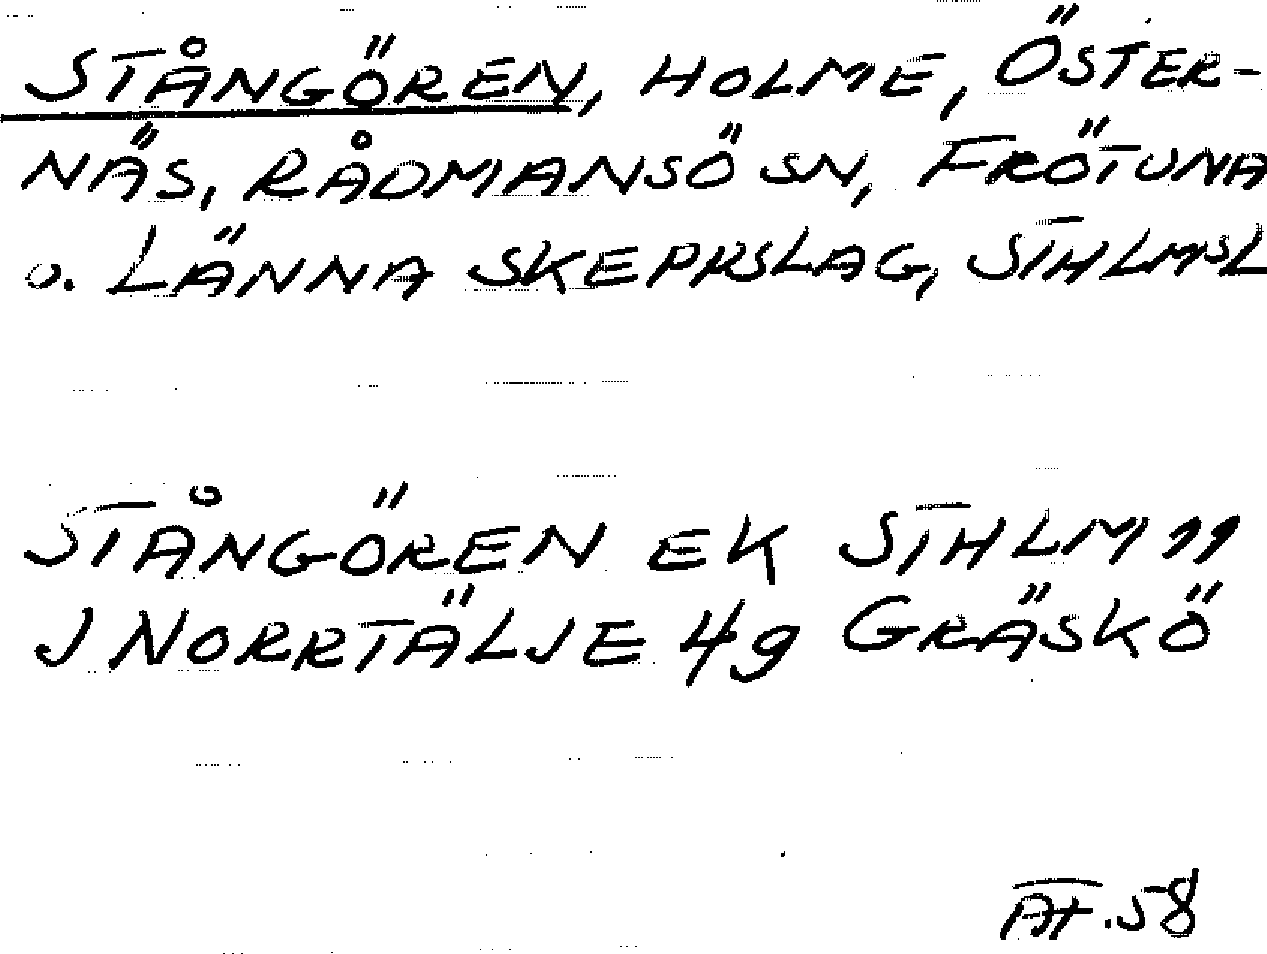 STÅNGÖREN, HOLME, ÖSTER-
NÄS, RÅDMANSÖ SN, FRÖTUNA
O. LÄNNA SKEPPSLAG, STHLMSL
STÅNGÖREN EK STHLM 11
J NORRTÄLJE 4g GRÄSKÖ
AF.58